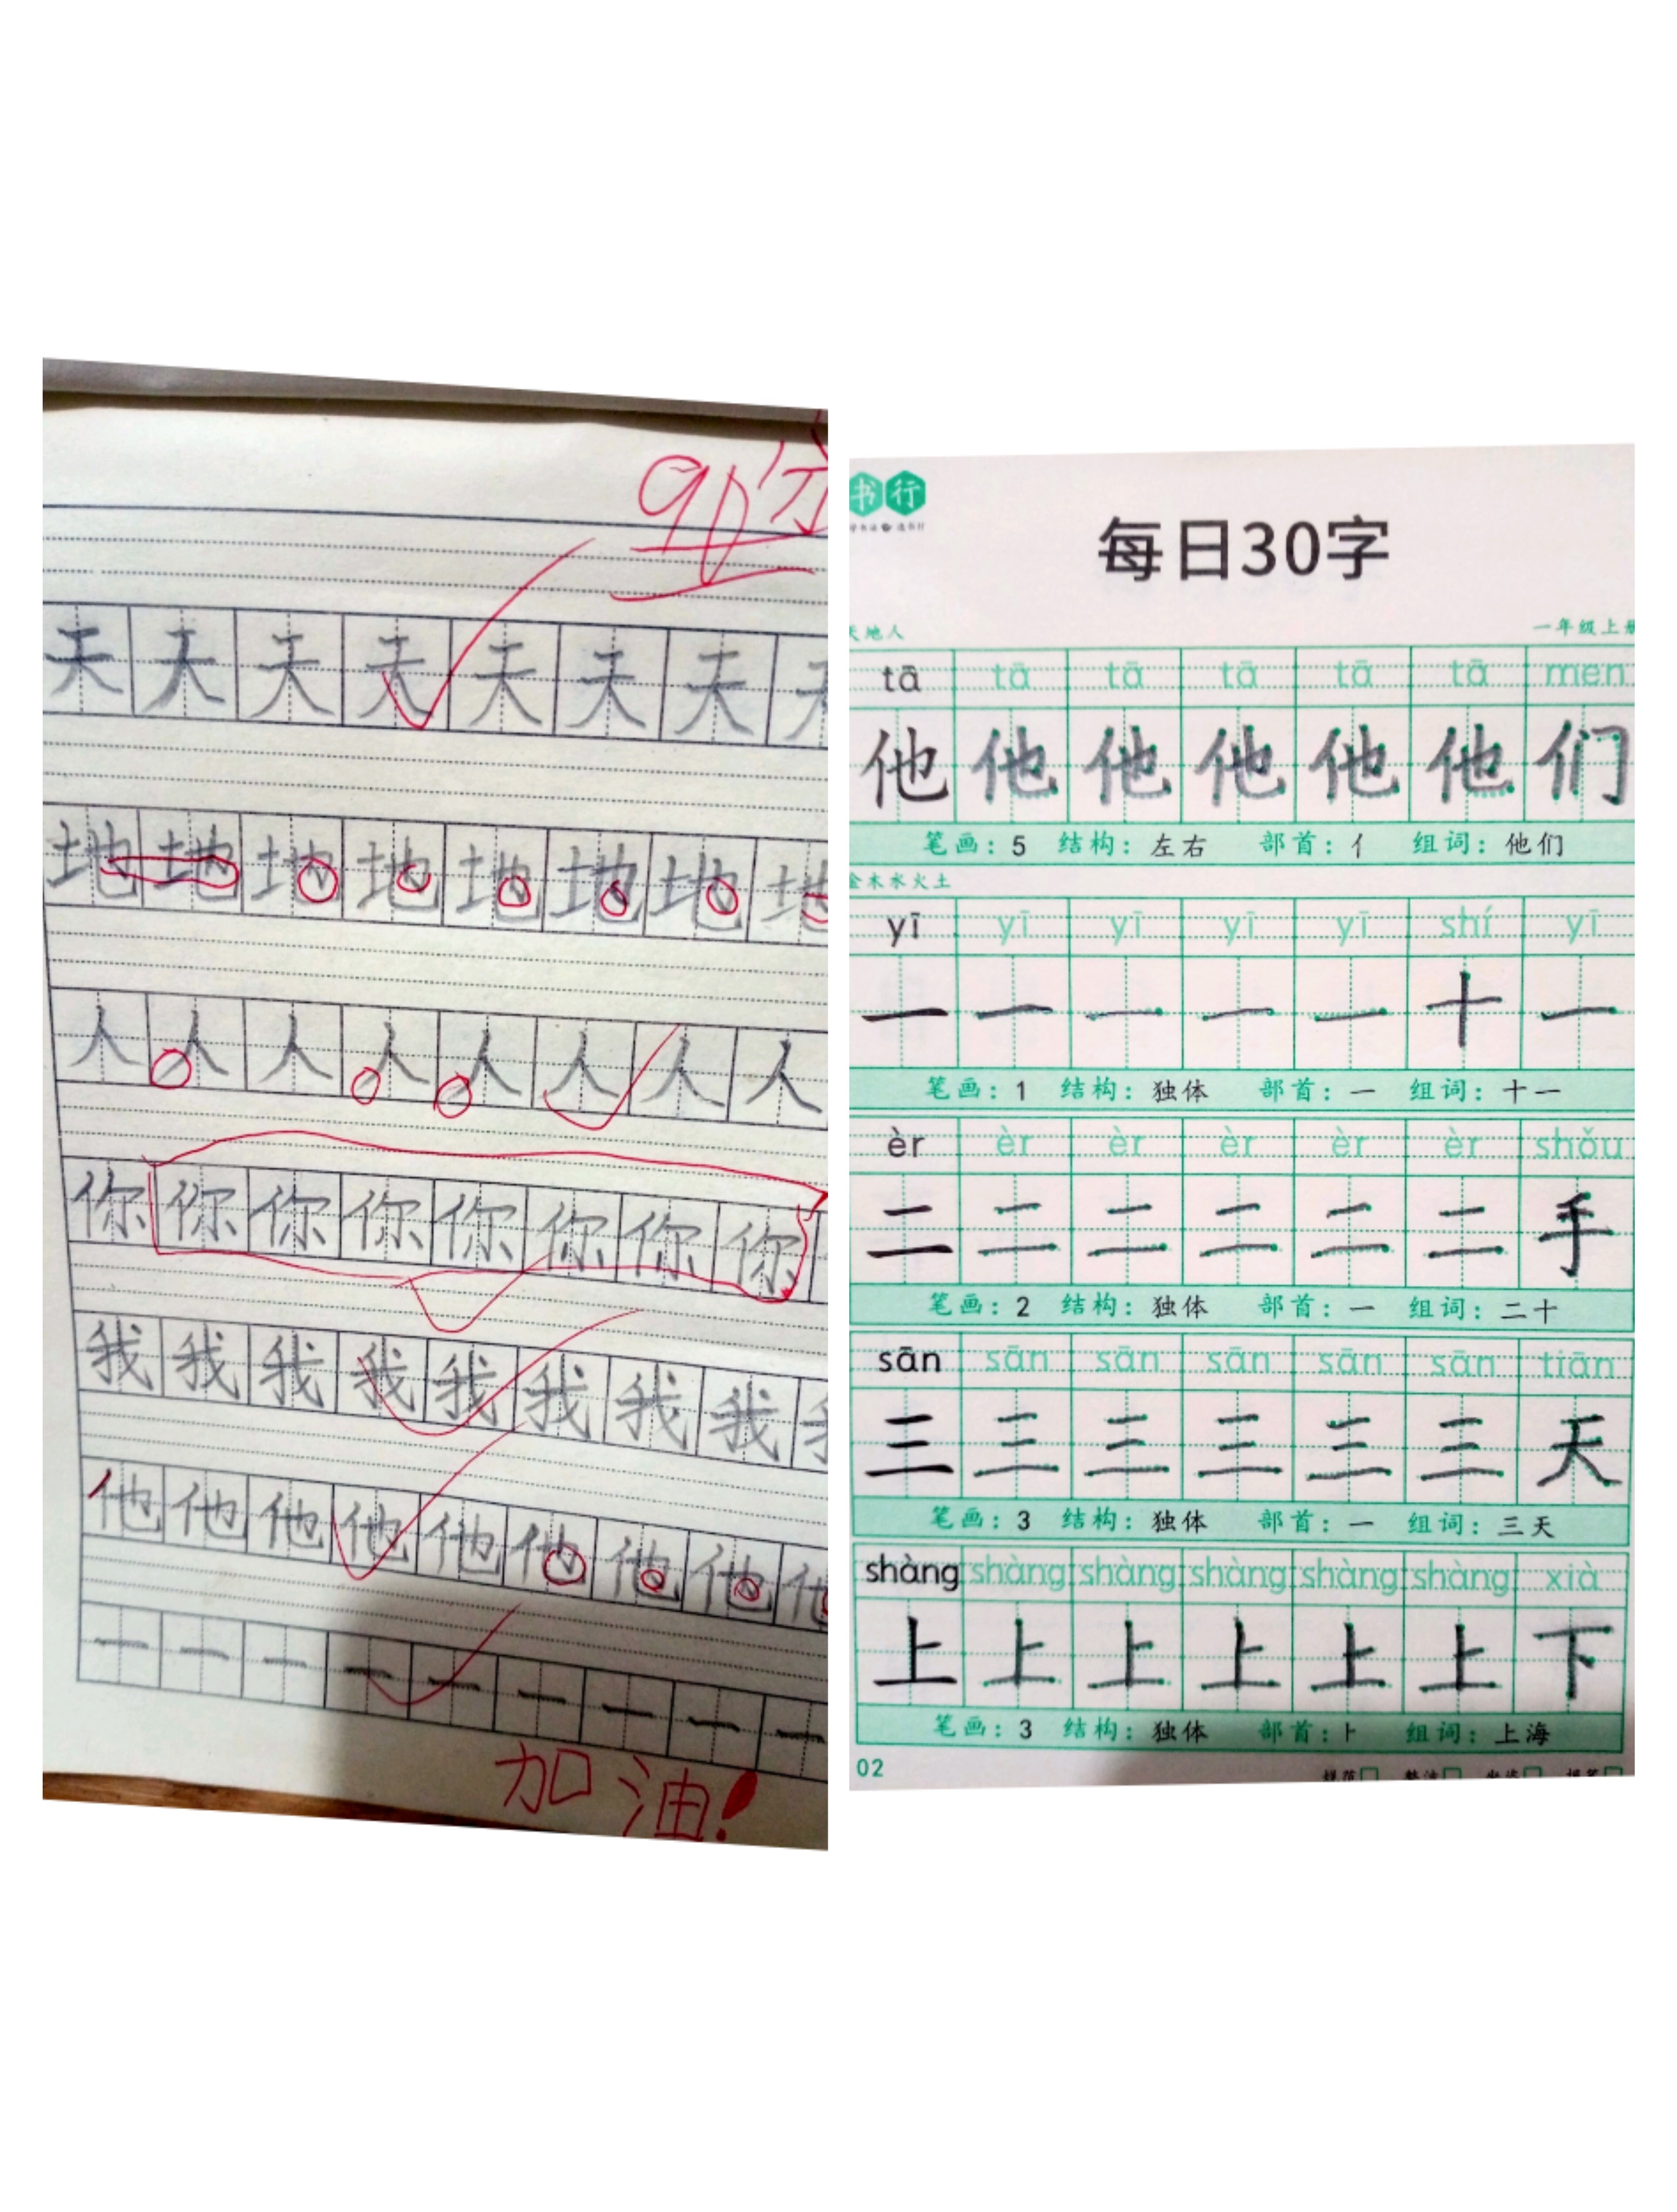 90分
天 天 天 天 天 天 天
地 地 地 地 地 地 地 地
人 人 人 人 人 人 人 人
你 你 你 你 你 你 你 你
我 我 我 我 我 我 我 我
他 他 他 他 他 他 他 他
一 一 一 一 一 一 一 一 一
加油!
书行
每日30字
天地人 一年级上册
tā tā tā tā tā tā men
他 他 他 他 他 他 们
笔画:5 结构:左右 部首:亻 组词:他们
金木水火土
yī yī yī yī yī shí yī
一 一 一 一 一 十 一
笔画:1 结构:独体 部首:一 组词:十一
èr èr èr èr èr èr shǒu
二 二 二 二 二 二 手
笔画:2 结构:独体 部首:一 组词:二十
sān sān sān sān sān sān tiān
三 三 三 三 三 三 天
笔画:3 结构:独体 部首:一 组词:三天
shàng shàng shàng shàng shàng shàng xià
上 上 上 上 上 上 下
笔画:3 结构:独体 部首:⺊ 组词:上海
02